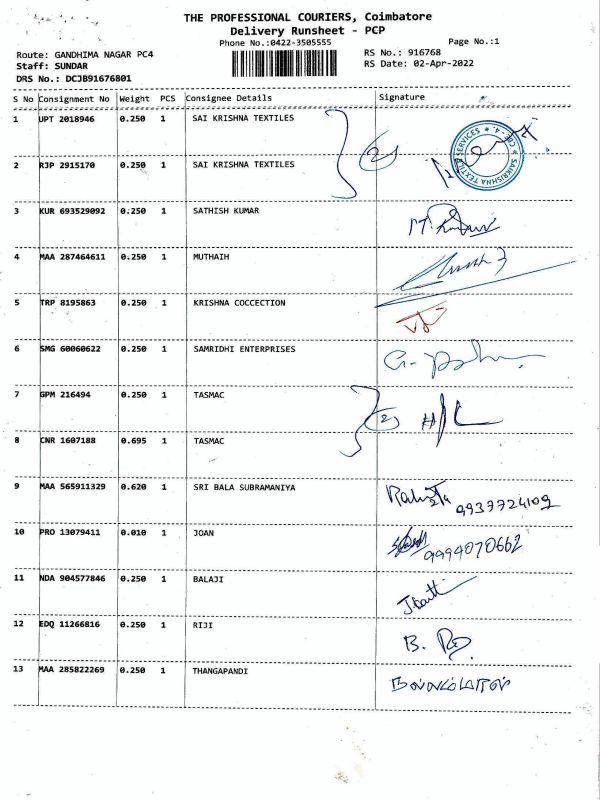 THE PROFESSIONAL COURIERS, Coimbatore
Delivery Runsheet - PCP
Phone No.:0422-3505555 Page No.:1
Route: GANDHIMA NAGAR PC4 RS No.: 916768
Staff: SUNDAR RS Date: 02-Apr-2022
DRS No.: DCJB91676801
S No Consignment No Weight PCS Consignee Details Signature
1 UPT 2018946 0.250 1 SAI KRISHNA TEXTILES
2
2 RJP 2915170 0.250 1 SAI KRISHNA TEXTILES
3 KUR 693529092 0.250 1 SATHISH KUMAR
4 MAA 287464611 0.250 1 MUTHAIH
5 TRP 8195863 0.250 1 KRISHNA COCCECTION
6 SMG 60060622 0.250 1 SAMRIDHI ENTERPRISES
7 GPM 216494 0.250 1 TASMAC
2
8 CNR 1607188 0.695 1 TASMAC
9 MAA 565911329 0.620 1 SRI BALA SUBRAMANIYA
9937724109
10 PRO 13079411 0.010 1 JOAN 9994070662
11 NDA 904577846 0.250 1 BALAJI
12 EDQ 11266816 0.250 1 RIJI B.
13 MAA 285822269 0.250 1 THANGAPANDI